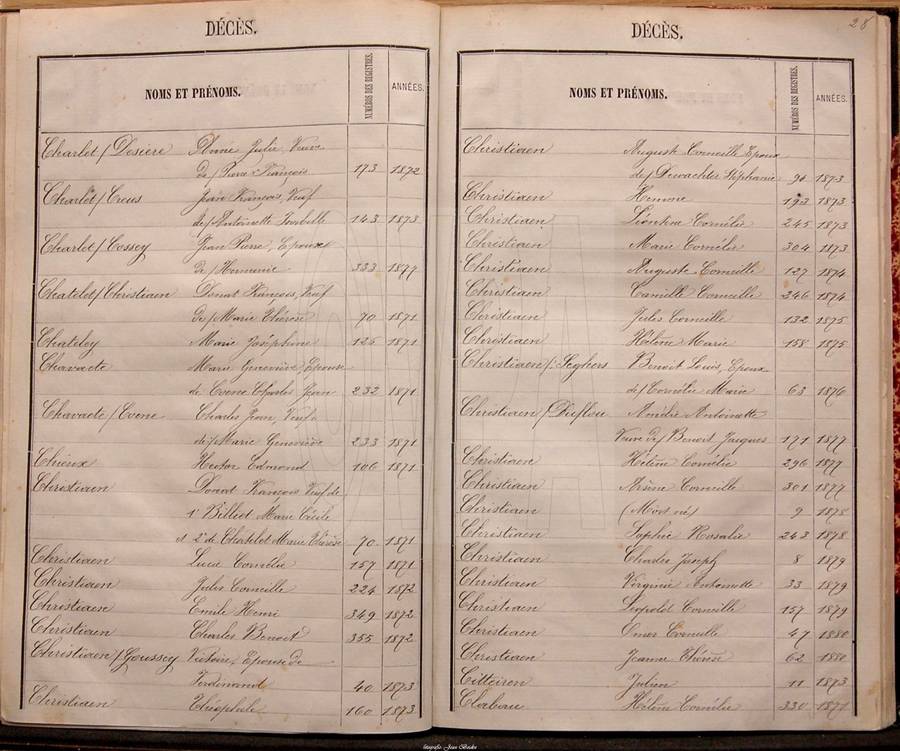 DÉCÈS.
NOMS ET PRÉNOMS. NUMÉROS DES REGISTRES. ANNÉES.
Charlet / Desiere Anne Julie, Veuve
de / Pierre François 173 1872
Charlet / Creus Jean François, Veuf
de / Antoinette 143 1873
Charlet / Cossey Jean Pierre, Epoux
de / 333 1877
Chatelet / Christiaen Donat François, Veuf
de / Marie Thérèse 70 1871
Chateley Marie Joséphine 125 1871
Chavaete Marie Geneviève, Epouse
de Coene Charles Jean 232 1871
Chavaete / Coene Charles Jean, Veuf
de / Marie Geneviève 233 1871
Chieux Hector Edmond 106 1871
Christiaen Donat François Veuf de
1° Billiet Marie Cécile
et 2° de Chatelet Marie Thérèse 70 1871
Christiaen Lucie Cornélie 157 1871
Christiaen Jules Corneille 224 1872
Christiaen Emile Henri 349 1872
Christiaen Charles Benoit 355 1872
Christiaen / Goussey Victoire, Epouse de
Ferdinand 40 1873
Christiaen Théophile 160 1873
28
DÉCÈS.
NOMS ET PRÉNOMS. NUMÉROS DES REGISTRES. ANNÉES.
Christiaen August Corneille Epoux
de / Dewachter Stéphanie 91 1873
Christiaen 193 1873
Christiaen Léontine Cornélie 245 1873
Christiaen Marie Cornélie 304 1873
Christiaen Auguste Corneille 127 1874
Christiaen Camille Corneille 246 1874
Christiaen Jules Corneille 132 1875
Christiaen Hélène Marie 158 1875
Christiaen / Seghers Benoit Louis, Epoux
de / Cornélie Marie 63 1876
Christiaen / Dufleu Amélie Antoinette
Veuve de / Benoit Jacques 171 1877
Christiaen Hélène Cornélie 296 1877
Christiaen Arsène Corneille 301 1877
Christiaen (Mort né) 9 1878
Christiaen Sophie Rosalie 243 1878
Christiaen Charles Joseph 8 1879
Christiaen Virginie Antoinette 33 1879
Christiaen Léopold Corneille 157 1879
Christiaen Omer Corneille 47 1880
Christiaen Jeanne Thérèse 62 1880
Citteiron Julien 11 1873
Clabau Hélène Cornélie 330 1871
fotografie: Jean Beeke